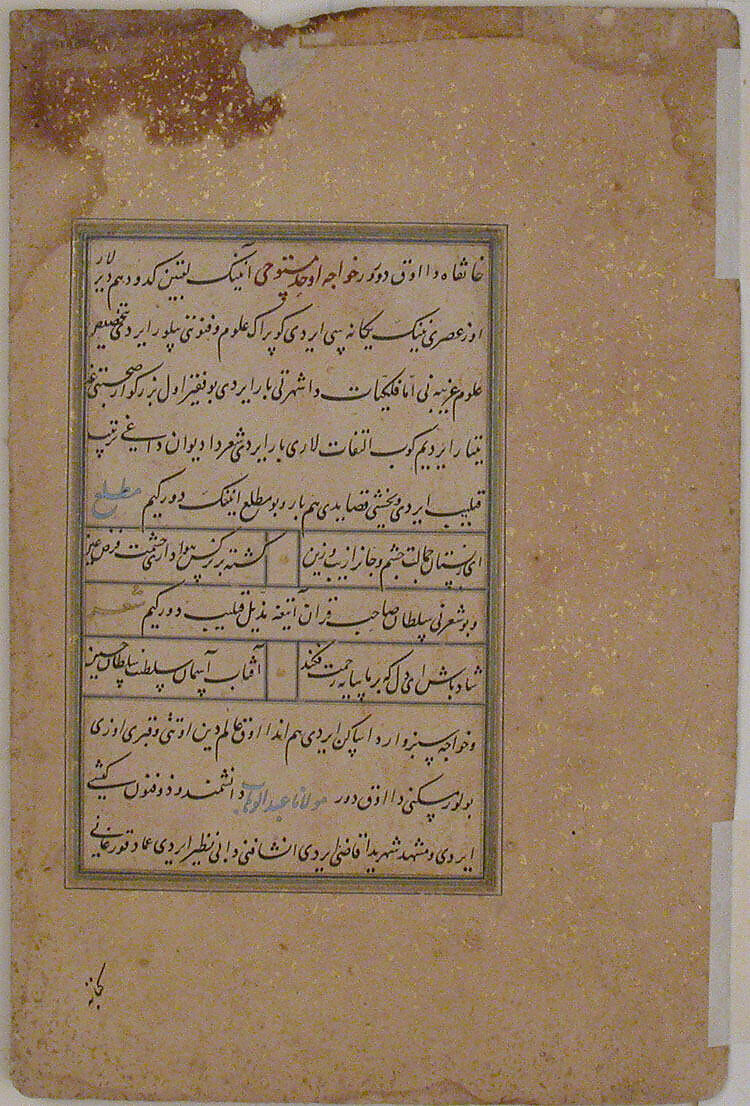 خانقاه دا اوق دورور خواجه اوحد مستوفی آنینک لقبین کدودهم دیرلار
اوز عصری نینک یکانه سی ایردی کوپراک علوم و فنونی بیلور ایردی تخصیص
علوم غریبه نی اما فلکیات دا شهرتی بار ایردی بو فقیر اول بزرکوار صحبتی غه
یتار ایردیم کوب التفات لاری بار ایردی شعر دا دیوان داغی ترتیب
قیلیب ایردی و یخشی قصایدی هم بار و بو مطلع انینک دور کیم مطلع
ای ز بستان جمالت چشم و جانرا زیب و زین
کشته بر نرکس هوا داری چشمت فرض عین
و بو شعر نی سلطان صاحب قران آتیغه مذیل قیلیب دور کیم شعر
شاد باش ای دل که بر ما سایه رحمت فکند
آفتاب آسمان سلطنت سلطان حسین
و خواجه سبزوار دا ساکن ایردی هم اندا اوق عالم دین اوتتی و قبری اوزی
بولور مسکنی دا اوق دور مولانا عبدالوهاب دانشمند و ذوفنون کیشی
ایردی و مشهد شهریدا قاضی ایردی انشا فنی دا بی نظیر ایردی عماد قورغانی